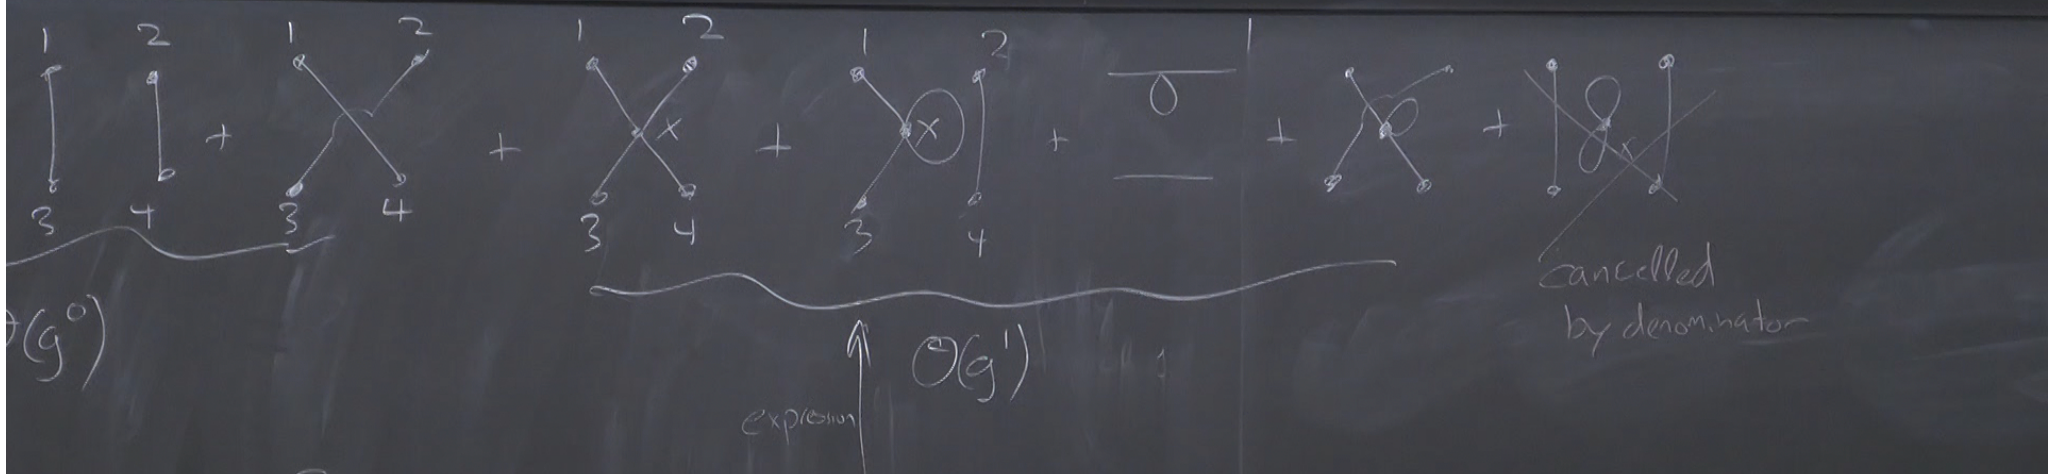 1 2 1 2 1 2 1 2
+ + x + x + + + x
3 4 3 4 3 4 3 4
O(g⁰)
O(g¹)
expression
cancelled
by denominator